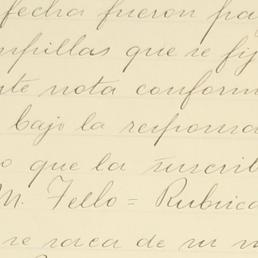 fecha fueron pa
mpillas que se fij
te nota conform
bajo la responsa
o que la suscrib
M. Tello = Rubrica
se saca de su